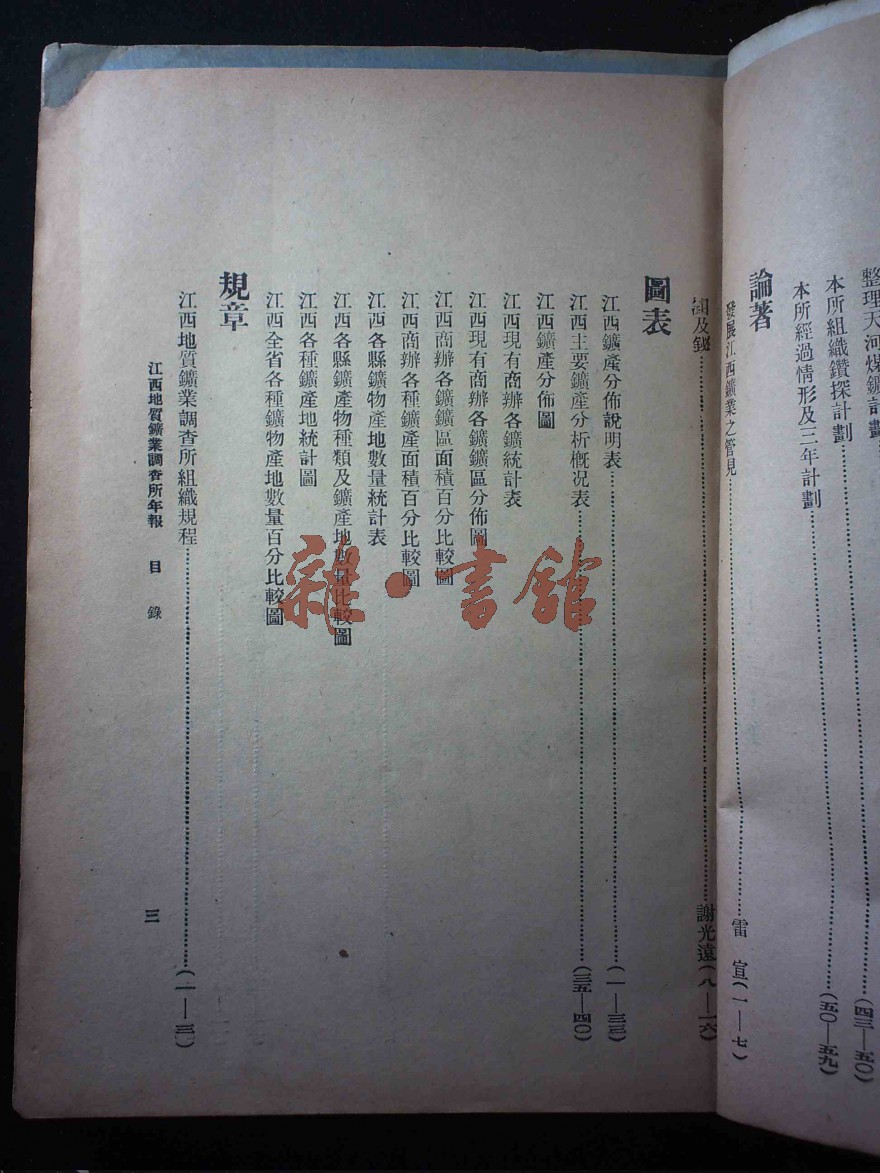 整理天河煤鑛計劃……(四三—五〇)
本所組織鑽探計劃……(五〇—五九)
本所經過情形及三年計劃
論著
發展江西鑛業之管見……雷宣(一—七)
鉬及鉍……謝光遠(八—一六)
圖表
江西鑛產分佈說明表……(一—三三)
江西主要鑛產分析概況表……(三五—四〇)
江西鑛產分佈圖
江西現有商辦各鑛統計表
江西現有商辦各鑛鑛區分佈圖
江西商辦各鑛鑛區面積百分比較圖
江西商辦各種鑛產面積百分比較圖
江西各縣鑛物產地數量統計表
江西各縣鑛產物種類及鑛產地數量比較圖
江西各種鑛產地統計圖
江西全省各種鑛物產地數量百分比較圖
規章
江西地質鑛業調查所組織規程……(一—三)
江西地質鑛業調查所年報 目錄
三
雜·書館